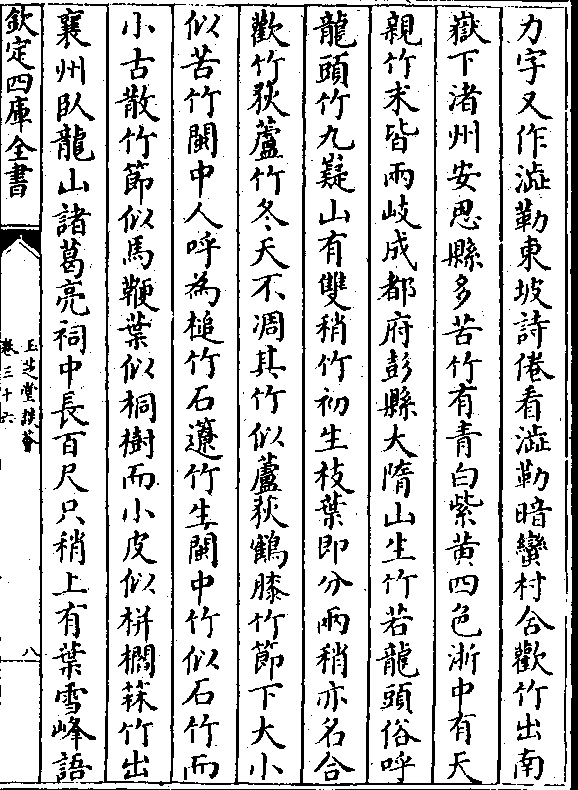 力字又作澁勒東坡詩倦看澁勒暗蠻村合歡竹出南
嶽下渚州安思縣多苦竹有青白紫黄四色浙中有天
親竹末皆兩岐成都府彭縣大隋山生竹若龍頭俗呼
龍頭竹九嶷山有雙稍竹初生枝葉即分兩稍亦名合
歡竹荻蘆竹冬天不凋其竹似蘆荻鶴膝竹節下大小
似苦竹閩中人呼為槌竹石䉬竹生閩中竹似石竹而
小古散竹節似馬鞭葉似桐樹而小皮似栟櫚箖竹出
襄州臥龍山諸葛亮祠中長百尺只稍上有葉雪峰語
欽定四庫全書
玉芝堂談薈
卷三十六
八